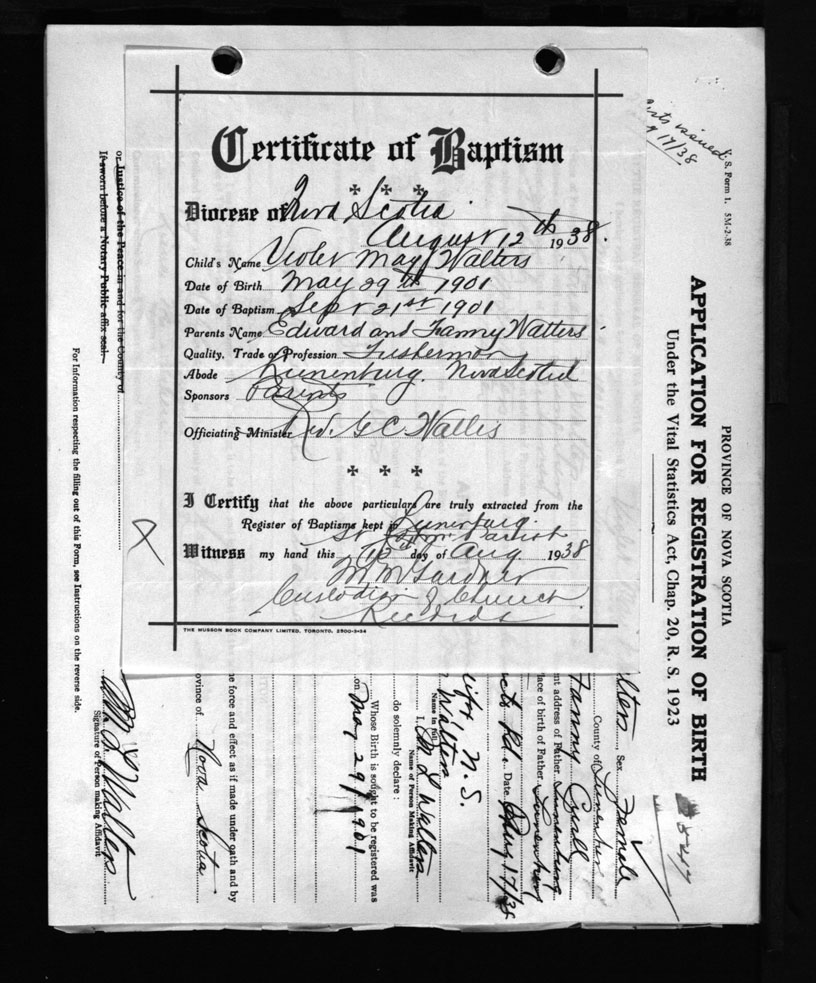 Certificate of Baptism
Diocese of Nova Scotia
August 12th 1938.
Child's Name Violet May Walters
Date of Birth May 29th 1901
Date of Baptism Sept 21st 1901
Parents Name Edward and Fanny Walters
Quality, Trade or Profession
Abode Lunenburg. Nova Scotia
Sponsors Parents
Officiating Minister Rev. G C Wallis
I Certify that the above particulars are truly extracted from the
Register of Baptisms kept in Lunenburg.
St Parish
Witness my hand this day of Aug 1938
M M Gardner
Custodian of Church
Records
THE MUSSON BOOK COMPANY LIMITED, TORONTO.
issued
17/38
S. Form 1. 5M-2-38
PROVINCE OF NOVA SCOTIA
APPLICATION FOR REGISTRATION OF BIRTH
Under the Vital Statistics Act, Chap. 20, R. S. 1923
lters Sex Female
County of Lunenburg
Fanny
nt address of Father. Lunenburg
lace of birth of Father Lunenburg
Rd. Date Aug 17/38
N. S.
Walters
Name in full
I, M L Walters
Name of Person Making Affidavit
do solemnly declare:
Whose Birth is sought to be registered was
on May 29/1901
e force and effect as if made under oath and by
rovince of Nova Scotia
M L Walters
Signature of Person making Affidavit
or Justice of the Peace in and for the County of
If sworn before a Notary Public affix seal.
For Information respecting the filling out of this Form, see Instructions on the reverse side.